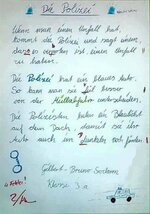 Die Polizei
Wenn man einen Unfall hat,
kommt die Polizei und sagt einem
dass es verboten ist einen Unfall
zu haben.
Die Polizei hat ein blaues Auto.
So kann man sie
von der Müllabfuhr unterscheiden.
Die Polizisten haben ein Blaulicht
auf dem Dach, damit sie ihr
Auto auch im Dunkeln
Gilbert - Bruno
Klasse 3a